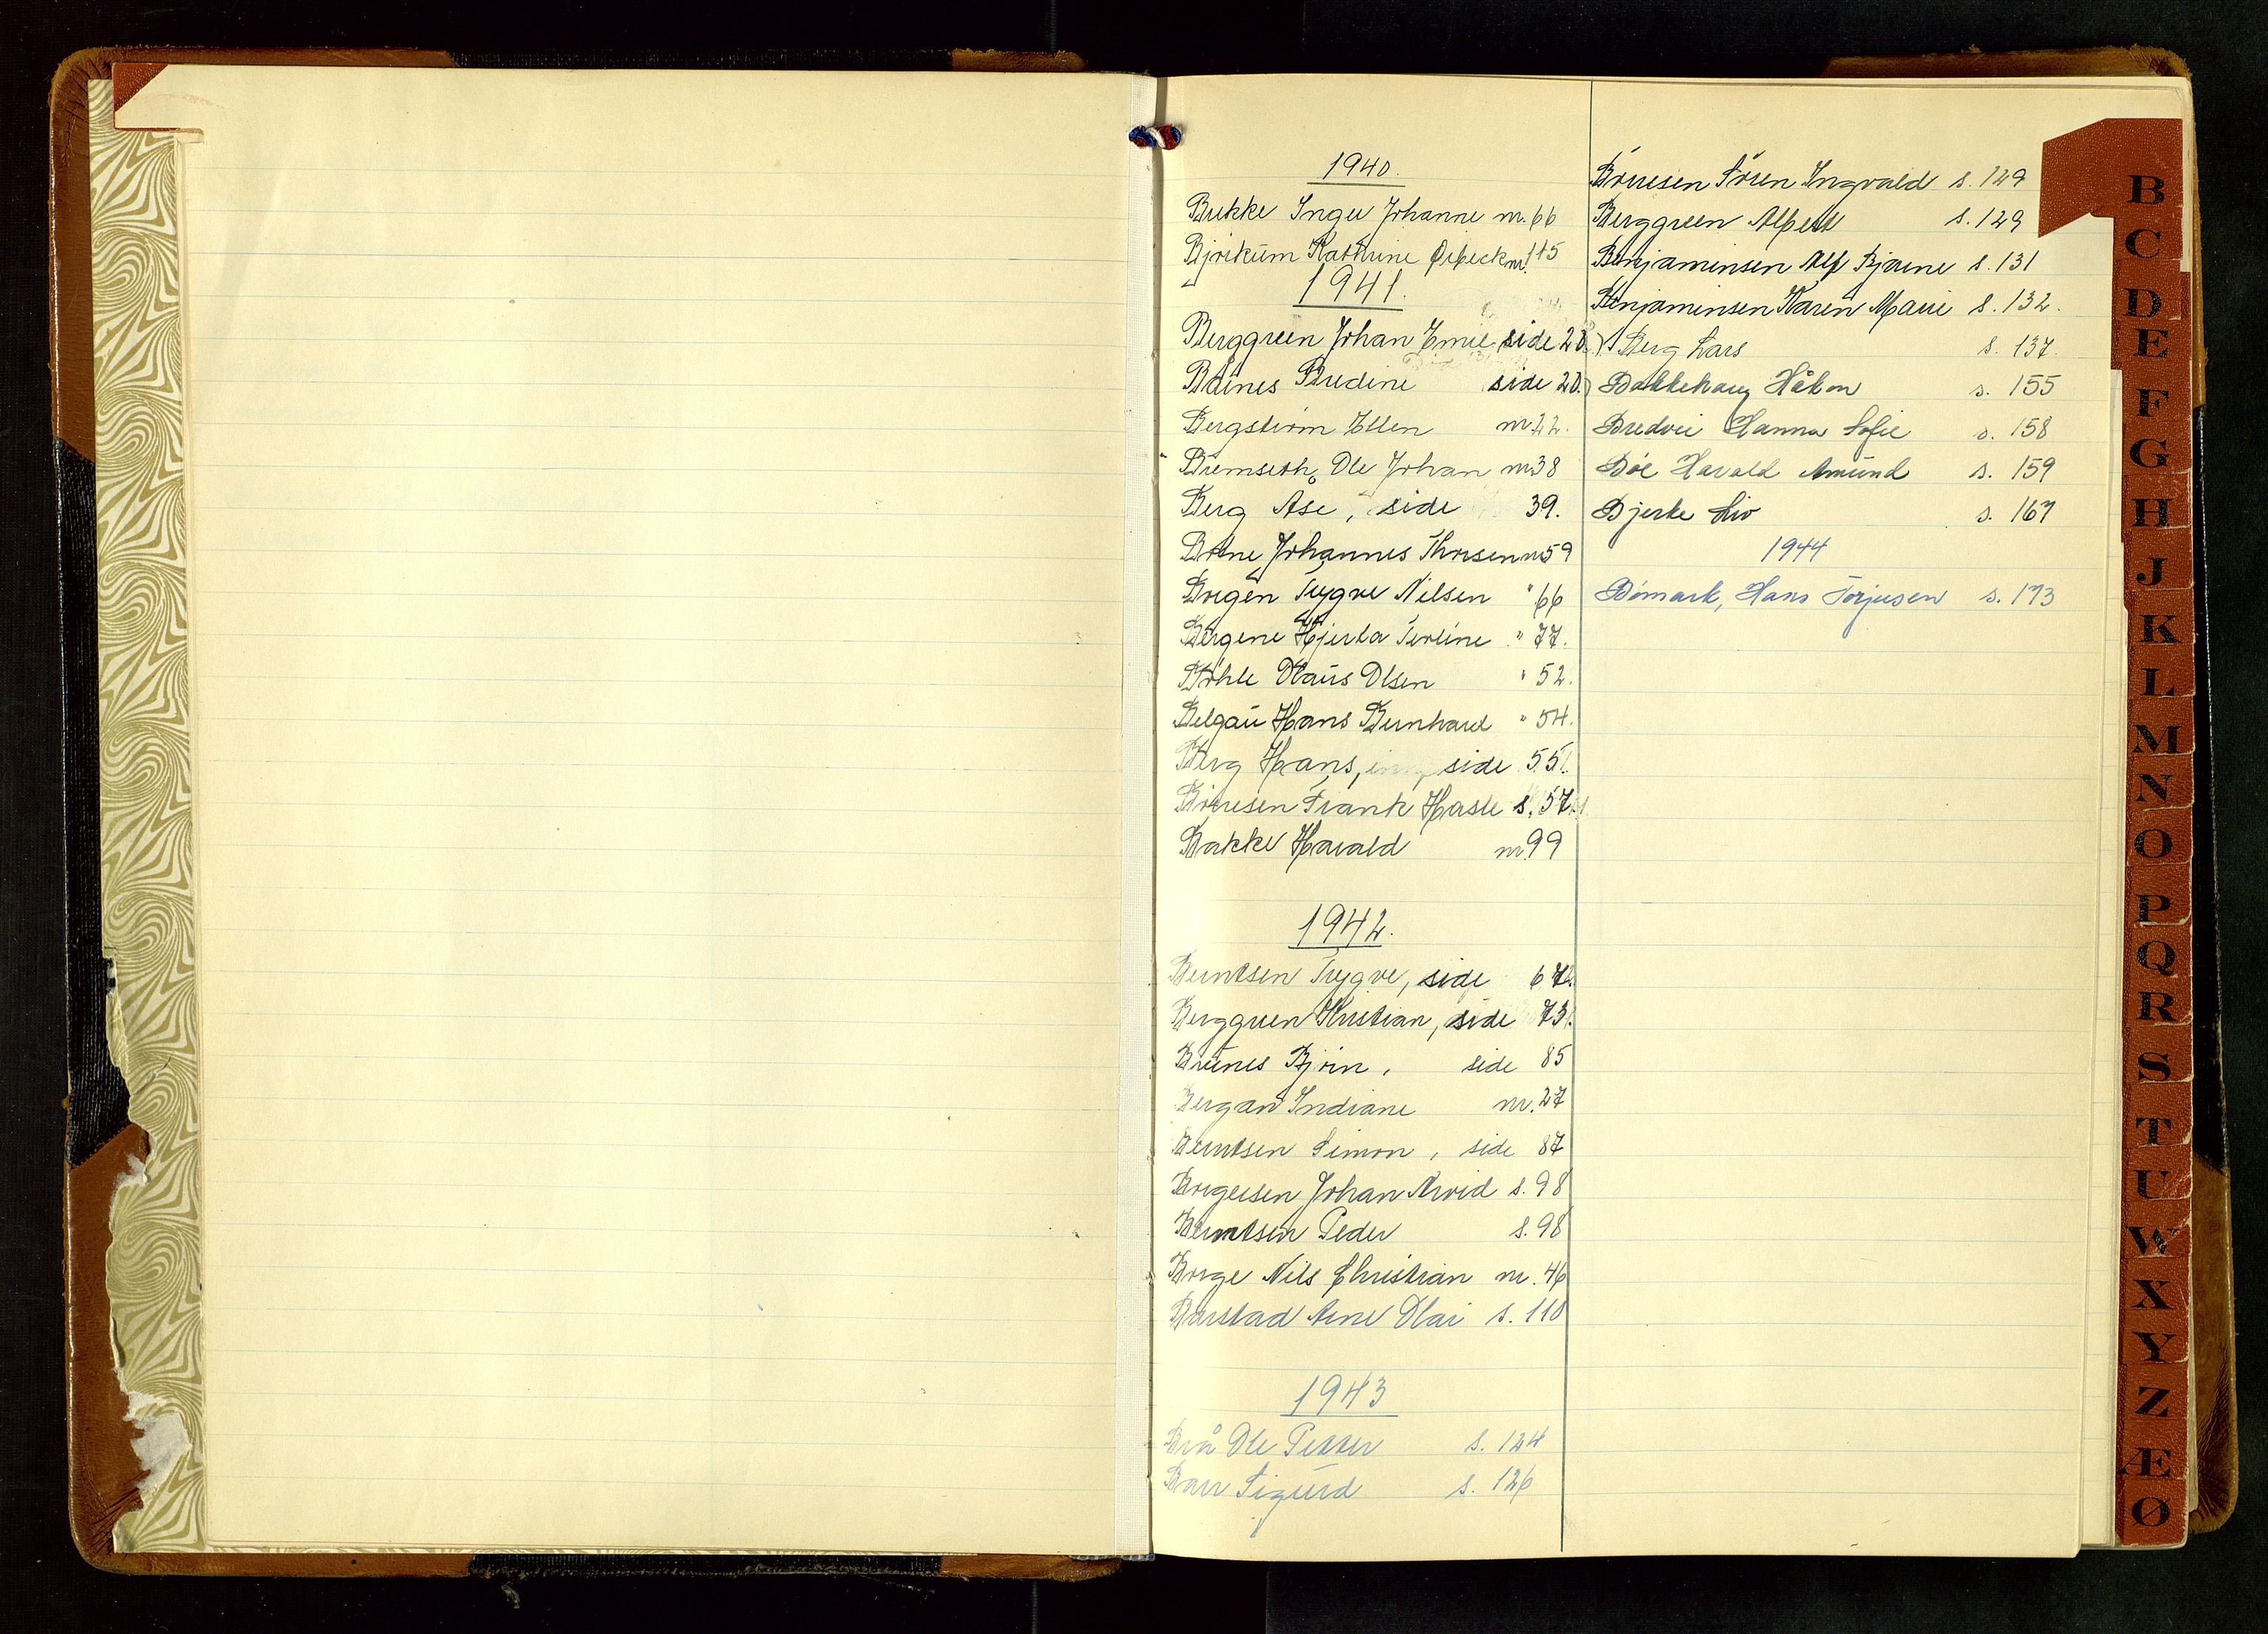 1940.
Bekke Inger Johanne nr. 66
Bjørkum Kathrine Ørbeck nr. 115
1941.
Berggreen Johan Emil side 20.
Båsnes Bredine side 20.
Bergstrøm Ellen nr. 22.
Bremseth, Ole Johan nr 38
Berg Åse, side 39.
Botne Johannes Thorsen nr 59
Borgen Trygve Nilsen " 66
Bergene Hjerta Terline " 77.
Bøhle Olaus Olsen " 52.
Belgau Hans Bernhard " 54.
Berg Hans, side 55.
Børresen Frank Hasle s. 57.
Bakke Harald nr. 99
1942.
Berntsen Trygve, side 67.
Berggren Kristian, side 73.
Brunes Bjørn, side 85
Bergan Indiane nr. 27
Berntsen Simon, side 87
Borgersen Johan Arvid s. 98
Berntsen Peder s. 98
Borge Nils Christian nr. 46
Barstad Arne Olai s. 110
1943
Brå Ole Petter s. 124
Barr Sigurd s. 126
Børresen Søren Ingvald s. 129
Berggreen Albert s. 129
Benjaminsen Alf Bjarne s. 131
Benjaminsen Karen Marie s. 132.
Berg Lars s. 137.
Bakkehaug Håkon s. 155
Bredvei Hanna Sofie s. 158
Bøe Harald Amund s. 159
Bjerke Liv s. 167
1944
Bømark, Hans Torjusen s. 173
B
C
D
E
F
G
H
J
K
L
M
N
O
P
Q
R
S
T
U
W
X
Y
Z
Æ
Ø